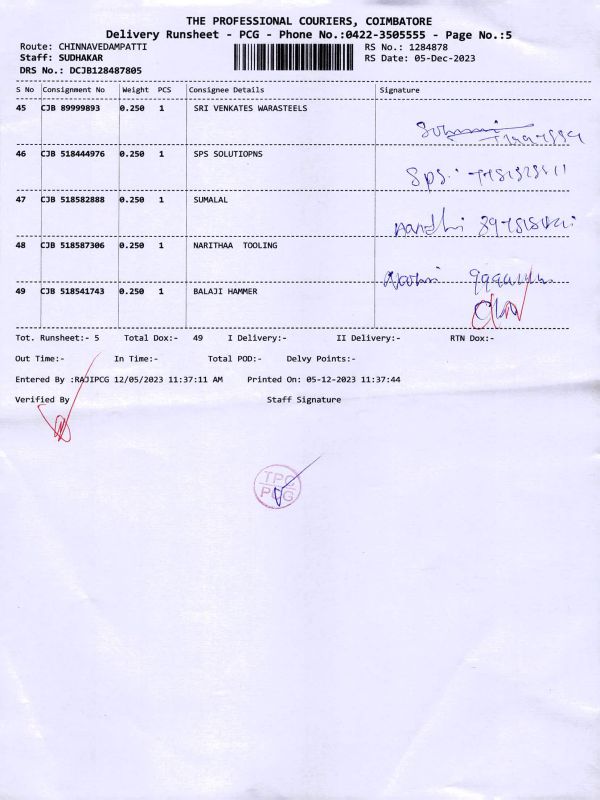 THE PROFESSIONAL COURIERS, COIMBATORE
Delivery Runsheet - PCG - Phone No.:0422-3505555 - Page No.:5
Route: CHINNAVEDAMPATTI
RS No.: 1284878
Staff: SUDHAKAR
RS Date: 05-Dec-2023
DRS No.: DCJB128487805
S No Consignment No Weight PCS Consignee Details Signature
45 CJB 89999893 0.250 1 SRI VENKATES WARASTEELS
46 CJB 518444976 0.250 1 SPS SOLUTIOPNS
Sps.
47 CJB 518582888 0.250 1 SUMALAL
nandhi
48 CJB 518587306 0.250 1 NARITHAA TOOLING
49 CJB 518541743 0.250 1 BALAJI HAMMER
Tot. Runsheet:- 5 Total Dox:- 49 I Delivery:- II Delivery:- RTN Dox:-
Out Time:- In Time:- Total POD:- Delvy Points:-
Entered By :RAJIPCG 12/05/2023 11:37:11 AM Printed On: 05-12-2023 11:37:44
Verified By Staff Signature
TPC
PCG